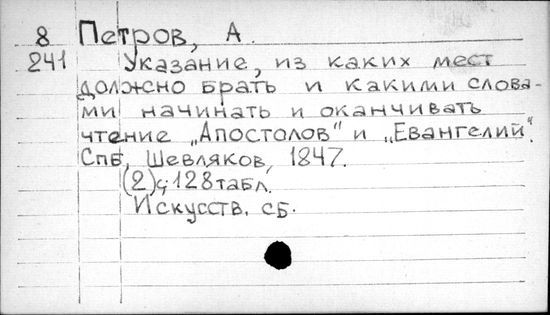 8 Петров, А.
241 Указание, из каких мест
должно брать и какими слова-
ми начинать и оканчивать
чтение „Апостолов" и „Евангелий".
Спб, Шевляков, 1847.
(2)с; 128табл.
Искусств. сб.